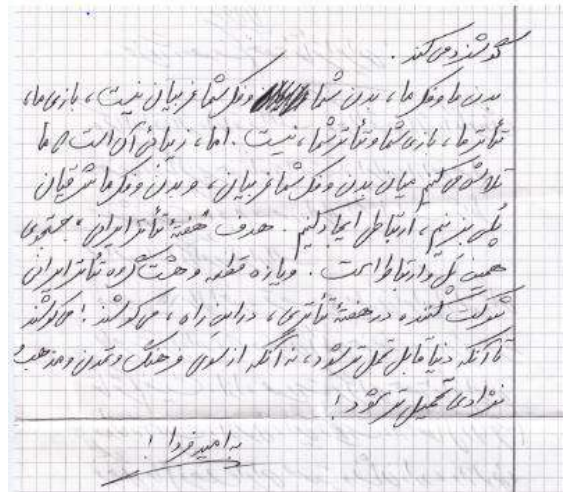 گوشزد می‌کند.
بدن ما و فکر ما، بدن شما و فکر شما غربیان نیست، بازی ما،
تئاتر ما، بازی شما و تئاتر شما، نیست. اما، زیبائی آن است که ما
تلاش می‌کنیم میان بدن و فکر شما غربیان، و بدن و فکر ما شرقیان
پُلی بزنیم، ارتباطی ایجاد کنیم. هدف "هفتهٔ تئاتر ایرانی" جستجوی
همین پُل و ارتباط است. و یازده قطعه و هشت گروه تئاتر ایرانی
شرکت کننده در هفتهٔ تئاتری، در این راه، می‌کوشند! می‌کوشند
تا آنکه دنیا قابل تحمل‌تر شود، نه آنکه از سوی فرهنگ و تمدن و مذهب و
نژادی تحمیل‌تر شود!
به امید فردا!